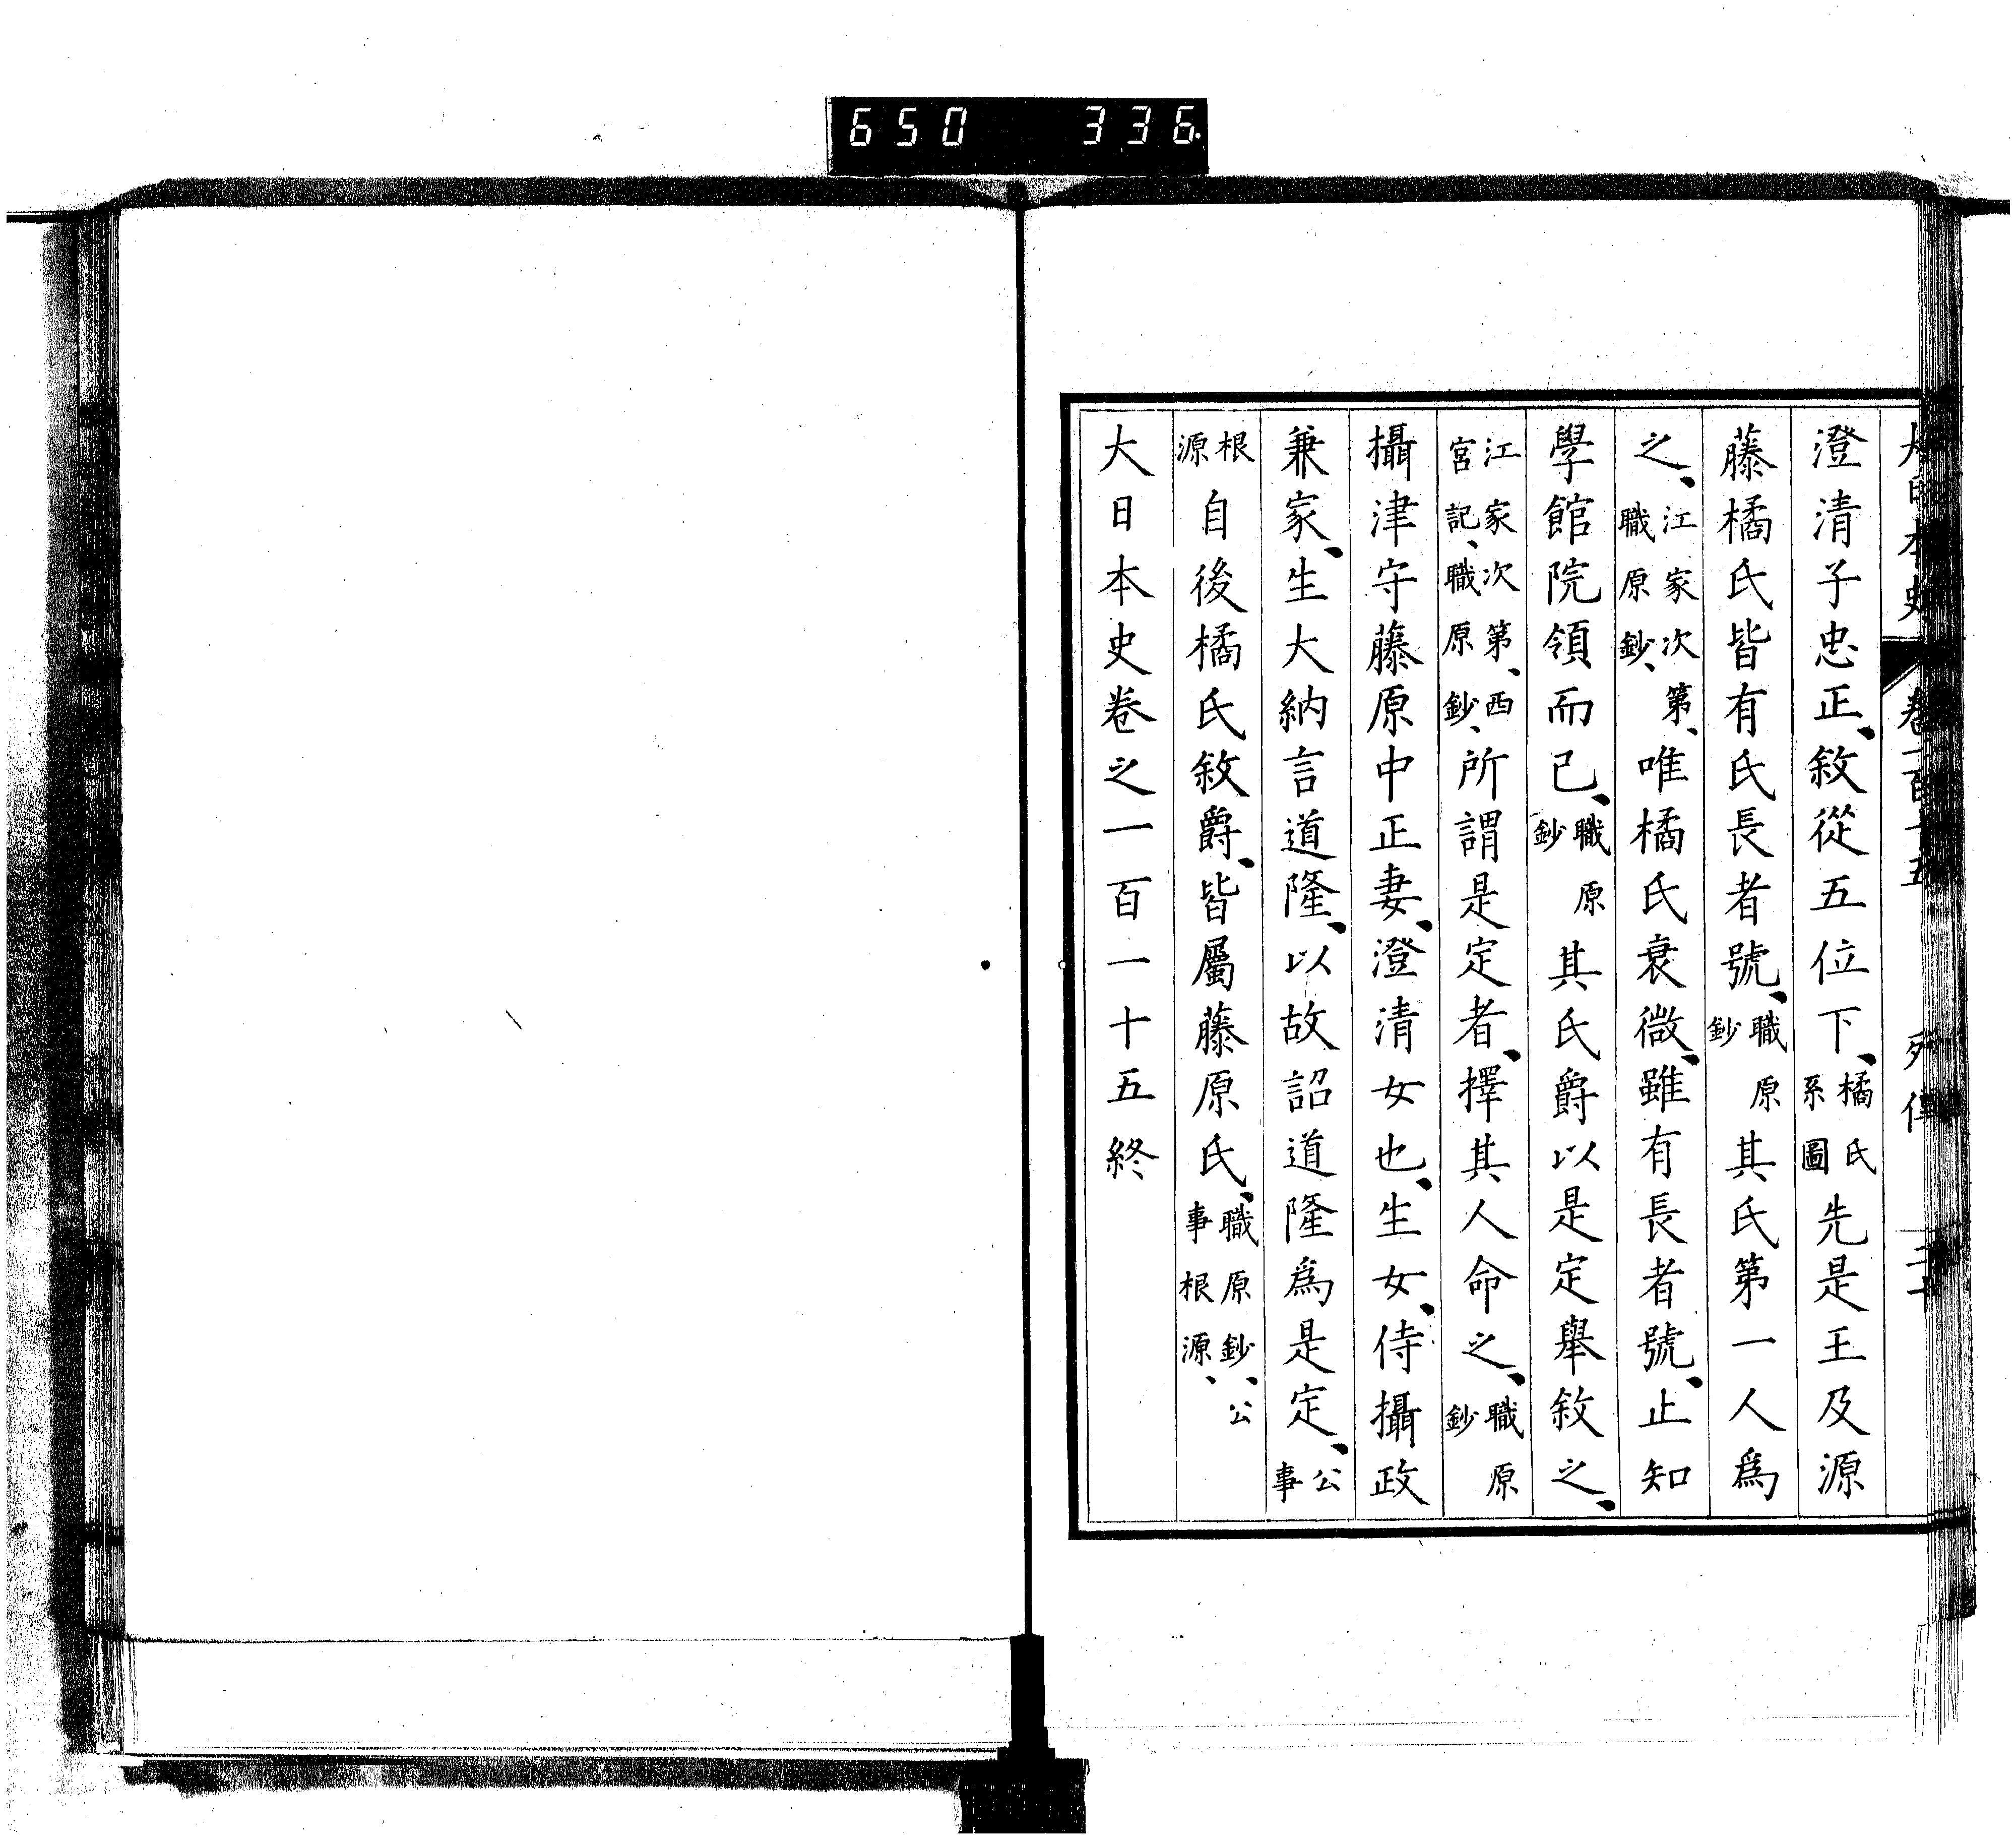 650 336
大日本史 卷一百十五 列傳
澄清子忠正、敘從五位下、橘氏系圖先是王及源
藤橘氏皆有氏長者號、職原鈔其氏第一人爲
之、江家次第、職原鈔、唯橘氏衰微、雖有長者號、止知
學館院領而已、職原鈔其氏爵以是定舉敘之、
江家次第、西宮記、職原鈔、所謂是定者、擇其人命之、職原鈔
攝津守藤原中正妻、澄清女也、生女、侍攝政
兼家、生大納言道隆、以故詔道隆爲是定、公事
根源自後橘氏敘爵、皆屬藤原氏、職原鈔、公事根源、
大日本史卷之一百一十五終